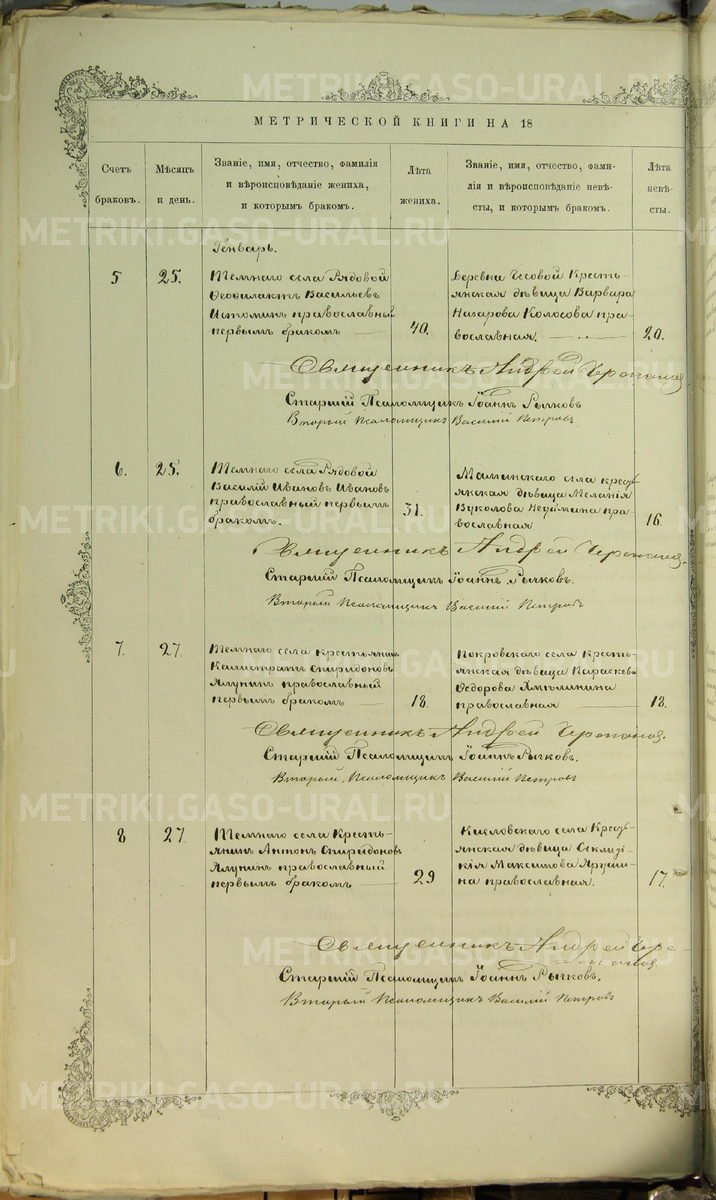 МЕТРИЧЕСКОЙ КНИГИ НА 18
Счетъ
браковъ.
Мѣсяцъ
и день.
Званіе, имя, отчество, фамилія
и вѣроисповѣданіе жениха,
и которымъ бракомъ.
Лѣта
жениха.
Званіе, имя, отчество, фами-
лія и вѣроисповѣданіе невѣ-
сты, и которымъ бракомъ.
Лѣта
невѣ-
сты.
Генварь.
5
25.
села Рядовой
Ѳеофилактъ Васильевъ
Истоминъ православный
первымъ бракомъ
40.
Деревни Кресть-
янская дѣвица Варвара
Назарова Колосова пра-
вославная.
20.
Священникъ Андрей
Старшій Псаломщикъ Іоаннъ Рычковъ
Вторый Псаломщикъ Василій Петровъ
6.
25.
села Рядовой
Василій Ивановъ Ивановъ
православный первымъ
бракомъ.
31.
Маминскаго села крестъ-
янская дѣвица Меланія
Вуколова пра-
вославная
16.
Священникъ Андрей
Старшій Псаломщикъ Іоаннъ Рычковъ.
Вторый Псаломщикъ Василій Петровъ
7.
27.
села крестьянинъ
Калистратъ Спиридоновъ
Ялунинъ православный
первымъ бракомъ
18.
Покровскаго села Кресть-
янская дѣвица Параскева
Ѳедорова
православная
18.
Священникъ Андрей
Старшій Псаломщикъ Іоаннъ Рычковъ.
Вторый Псаломщикъ Василій Петровъ
8
27.
села Кресть-
янинъ Антонъ Спиридоновъ
Ялунинъ православный
первымъ бракомъ
29
Кисловскаго села Кресть-
янская дѣвица
Максимова Яруши-
на православная.
17.
Священникъ Андрей
Старшій Псаломщикъ Іоаннъ Рычковъ.
Вторый Псаломщикъ Василій Петровъ
METRIKI.GASO-URAL.RU